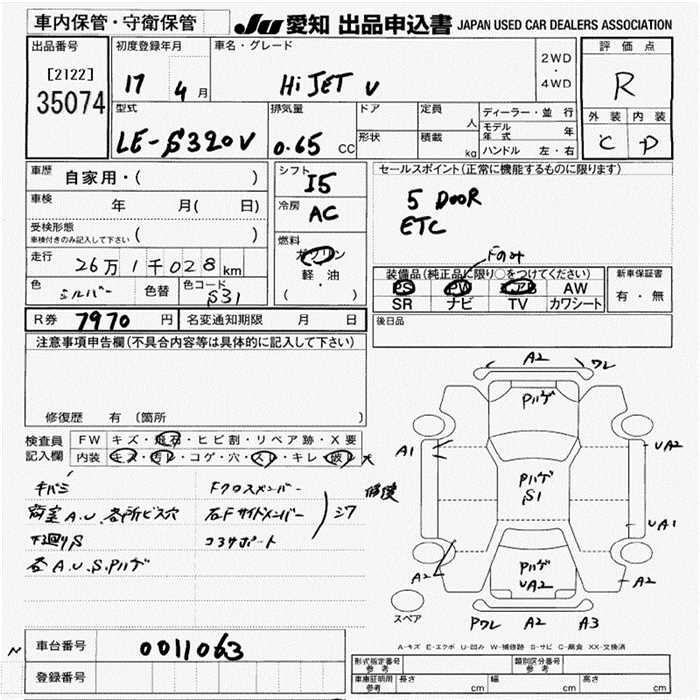 車内保管・守衛保管
JU 愛知 出品申込書 JAPAN USED CAR DEALERS ASSOCIATION
出品番号
[2122]
35074
初度登録年月
17 4 月
車名・グレード
Hi JET V
2WD
・
4WD
評価点
R
外装 内装
C D
型式
LE-S320V
排気量
0.65 CC
ドア
形状
定員
人
積載
kg
ディーラー・並行
モデル年式 年
ハンドル 左・右
車歴
自家用・( )
車検
年 月( 日)
受検形態
車検付きのみ記入して下さい
( )
走行
26万1千028km
色
シルバー
色替
色コード
S31
シフト
I5
冷房
AC
燃料
ガソリン
・
軽・油
( )
セールスポイント(正常に機能するものに限ります)
5 DOOR
ETC
Fのみ
装備品(純正品に限り○をつけてください)
PS PW エアB AW
SR ナビ TV カワシート
新車保証書
有・無
R券 7970 円
名変通知期限 月 日
後日品
注意事項申告欄(不具合内容等は具体的に記入して下さい)
修復歴 有 (箇所 )
検査員
記入欄
FW キズ・飛石・ヒビ割・リペア跡・X要
内装 キズ・汚レ・コゲ・穴・スレ・キレ・破レ 大
Fクロスメンバー
荷室A.U.各所ビス穴
右Fサイドメンバー
下廻りS
コアサポート
各A.U.S.Pハゲ
A2
ワレ
Pハゲ
A1
UA2
Pハゲ
S1
UA1
Pハゲ
UA2
A2
A2
スペア
Pワレ A2 A3
A-キズ E-エクボ U-凹み W-補修跡 S-サビ C-腐食 XX-交換済
N
車台番号 0011063
登録番号
形式指定番号
参考
類別区分番号
参考
車庫証明用
参考
長さ cm 幅 cm 高さ cm